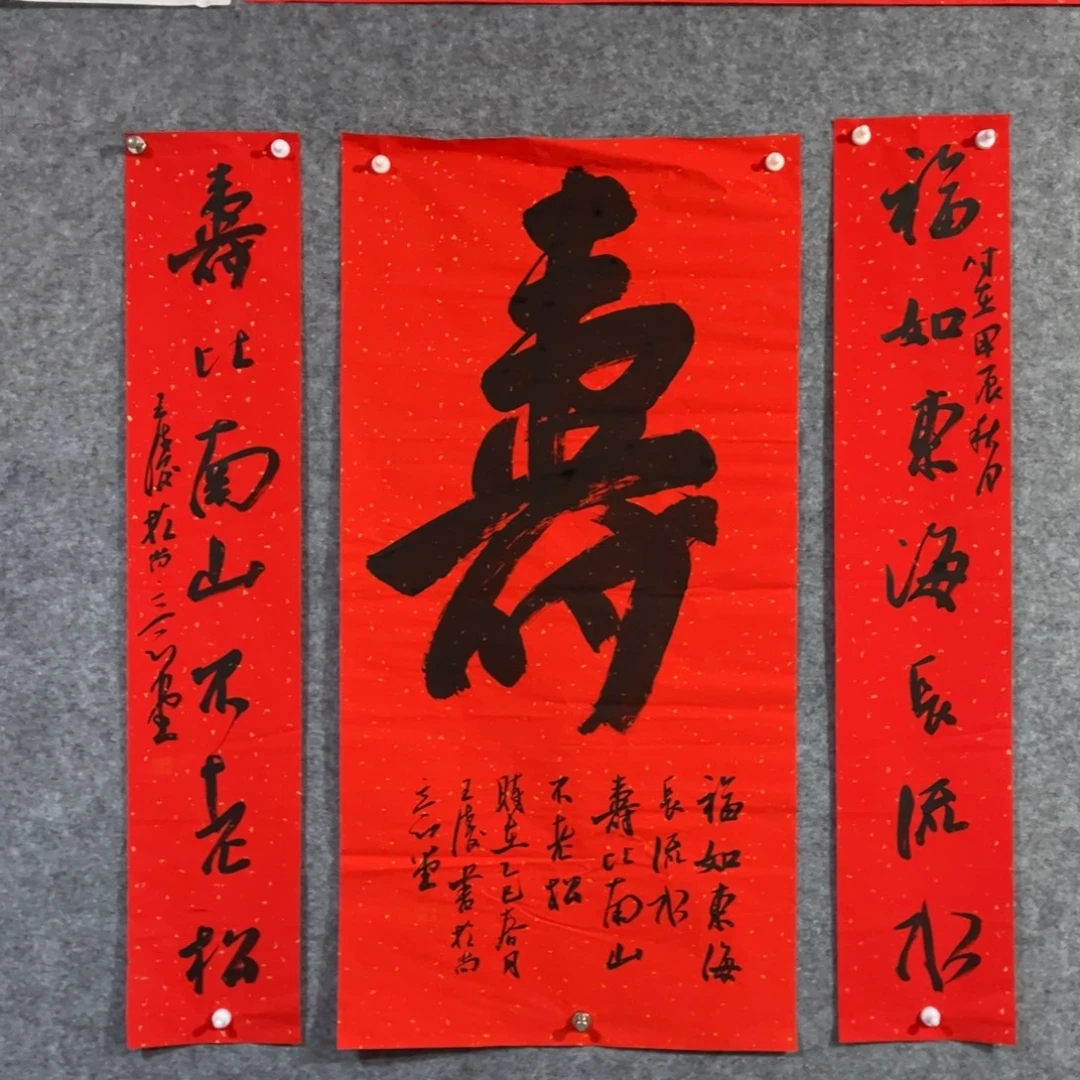 福如東海長流水
时在甲辰秋月
壽
福如東海
長流水
壽比南山
不老松
時在乙巳春月
王慶書於尚
三心堂
壽比南山不老松
王慶於尚三心堂